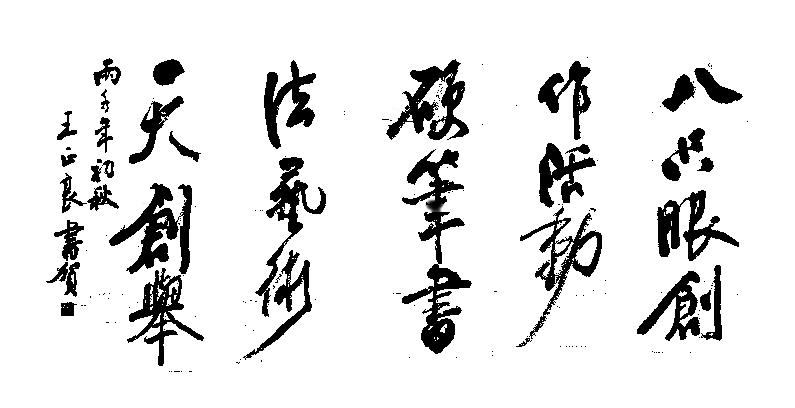 八只眼創
作活動
硬筆書
法藝術
一大創舉
丙子年初秋
王正良書賀